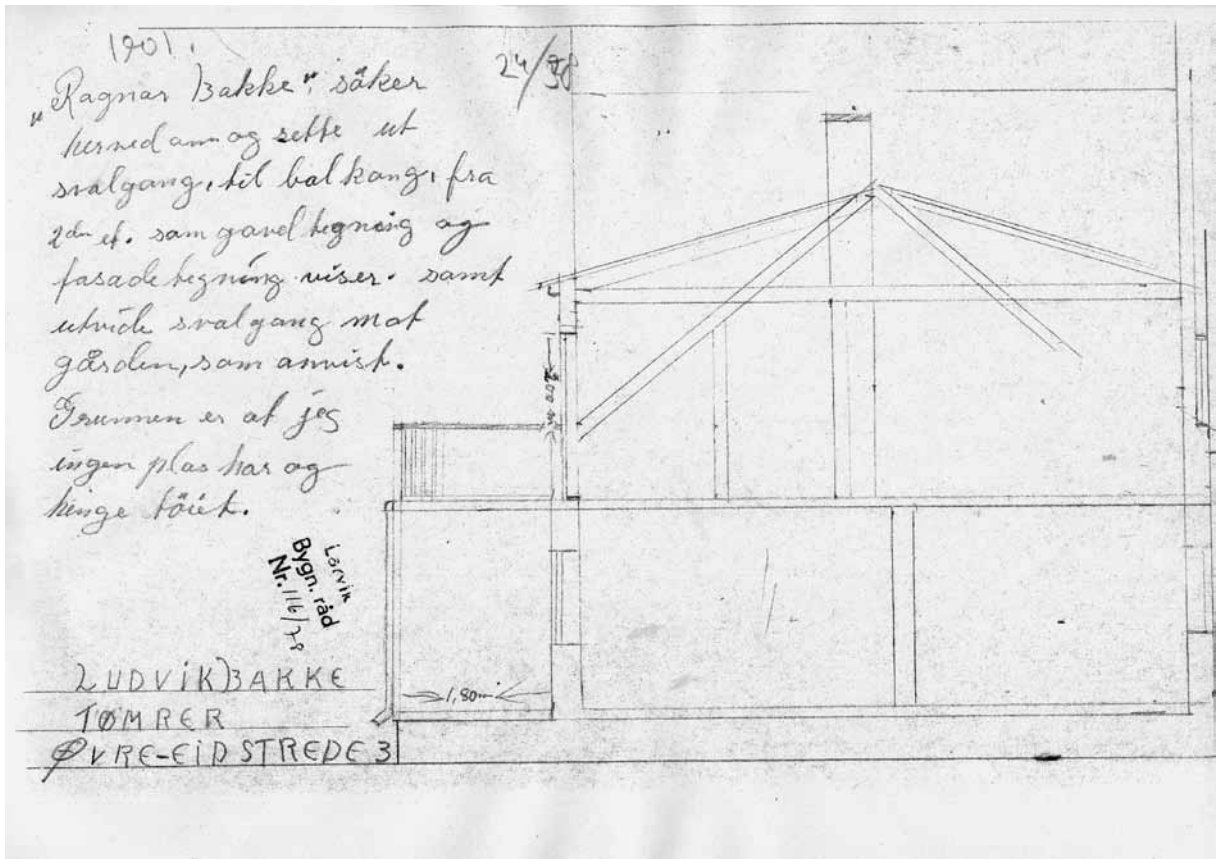 1901.
24/98
"Ragnar Bakke", søker
herved om og sette ut
svalgang, til balkong, fra
2den et. som gavel tegning og
fasade tegning viser. samt
utvide svalgang mot
gården, som anvist.
Grunnen er at jeg
ingen plas har og
henge töiet.
Larvik
Bygn. råd
Nr. 116/78
LUDVIK BAKKE
TØMRER
ØVRE-EIDSTREDE 3
1,80m